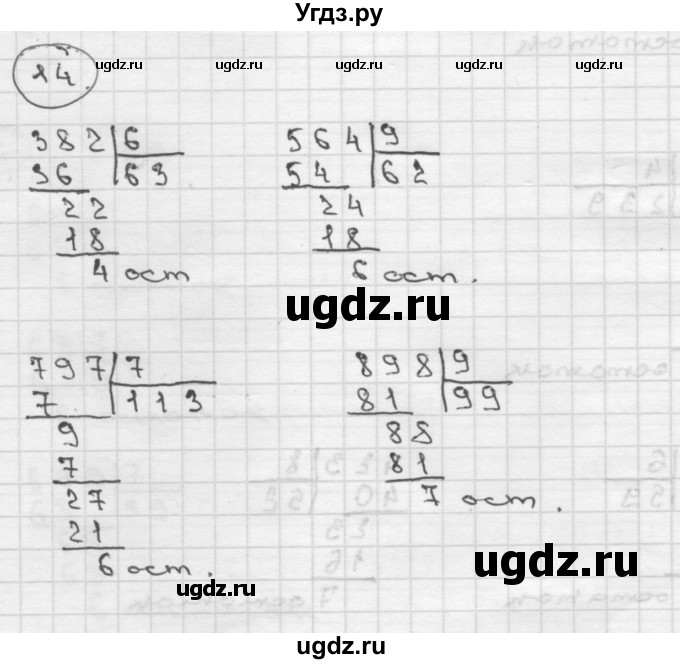 Угдз.ру
14
ugdz.ru ugdz.ru ugdz.ru
382 | 6
36 63
22
18
4 ост
564 | 9
54 62
24
18
6 ост.
ugdz.ru
ugdz.ru
797 | 7
7 113
9
7
27
21
6 ост.
898 | 9
81 99
88
81
7 ост.
ugdz.ru
ugdz.ru
ugdz.ru